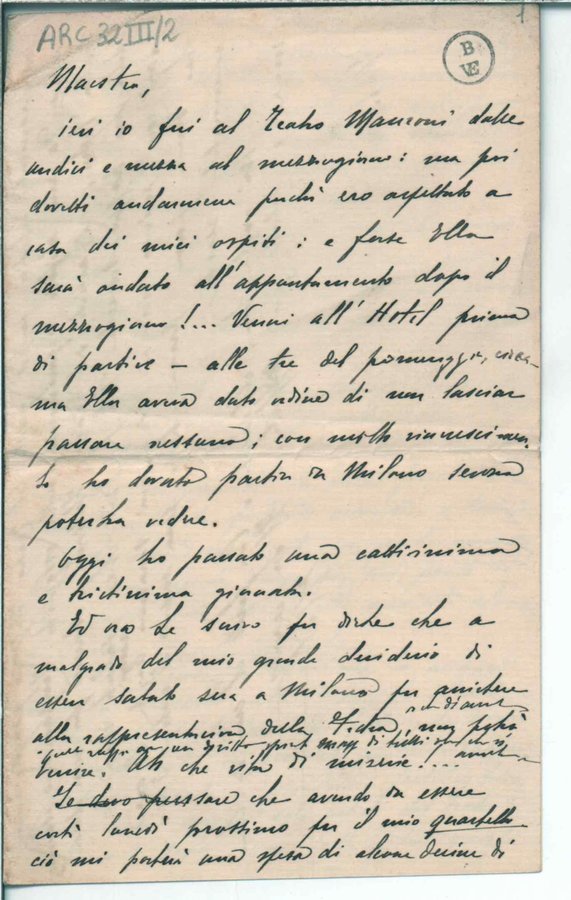 ARC 32 III/2
1
B
VE
Maestro,
ieri io fui al Teatro Manzoni dalle
undici e mezza al mezzogiorno: ma poi
dovetti andarmene perchè ero aspettato a
casa dei miei ospiti: e forse Ella
sarà andato all'appuntamento dopo il
mezzogiorno!... Venni all'Hotel prima
di partire — alle tre del pomeriggio, circa —
ma Ella aveva dato ordine di non lasciar
passare nessuno; con molto rincrescimen
to ho dovuto partir da Milano senza
poterla vedere.
Oggi ho passato una cattivissima
e tristissima giornata.
Ed ora Le scrivo per dirle che a
malgrado del mio grande desiderio di
essere sabato sera a Milano per assistere
alla rappresentazione della Fedra, non potrò
venire. Ah che vita di miserie!...
Le devo pensare che avendo da essere
costì lunedì prossimo per il mio quartetto
ciò mi porterà una spesa di alcune decine di